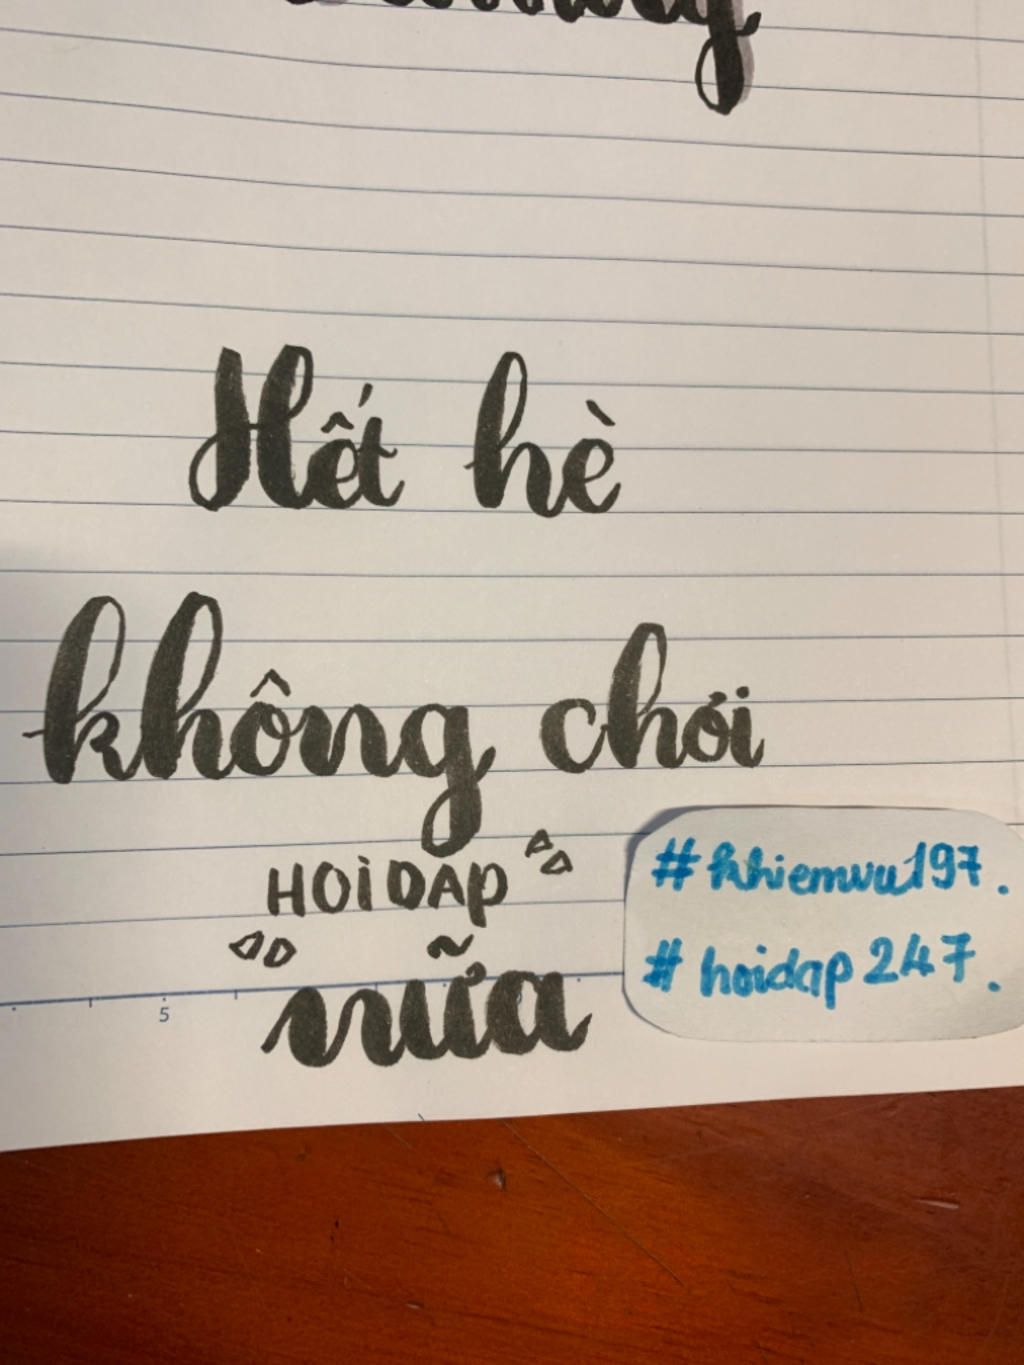 Hết hè
không chơi
HOIDAP
nữa
5
#khiemvu197.
#hoidap247.